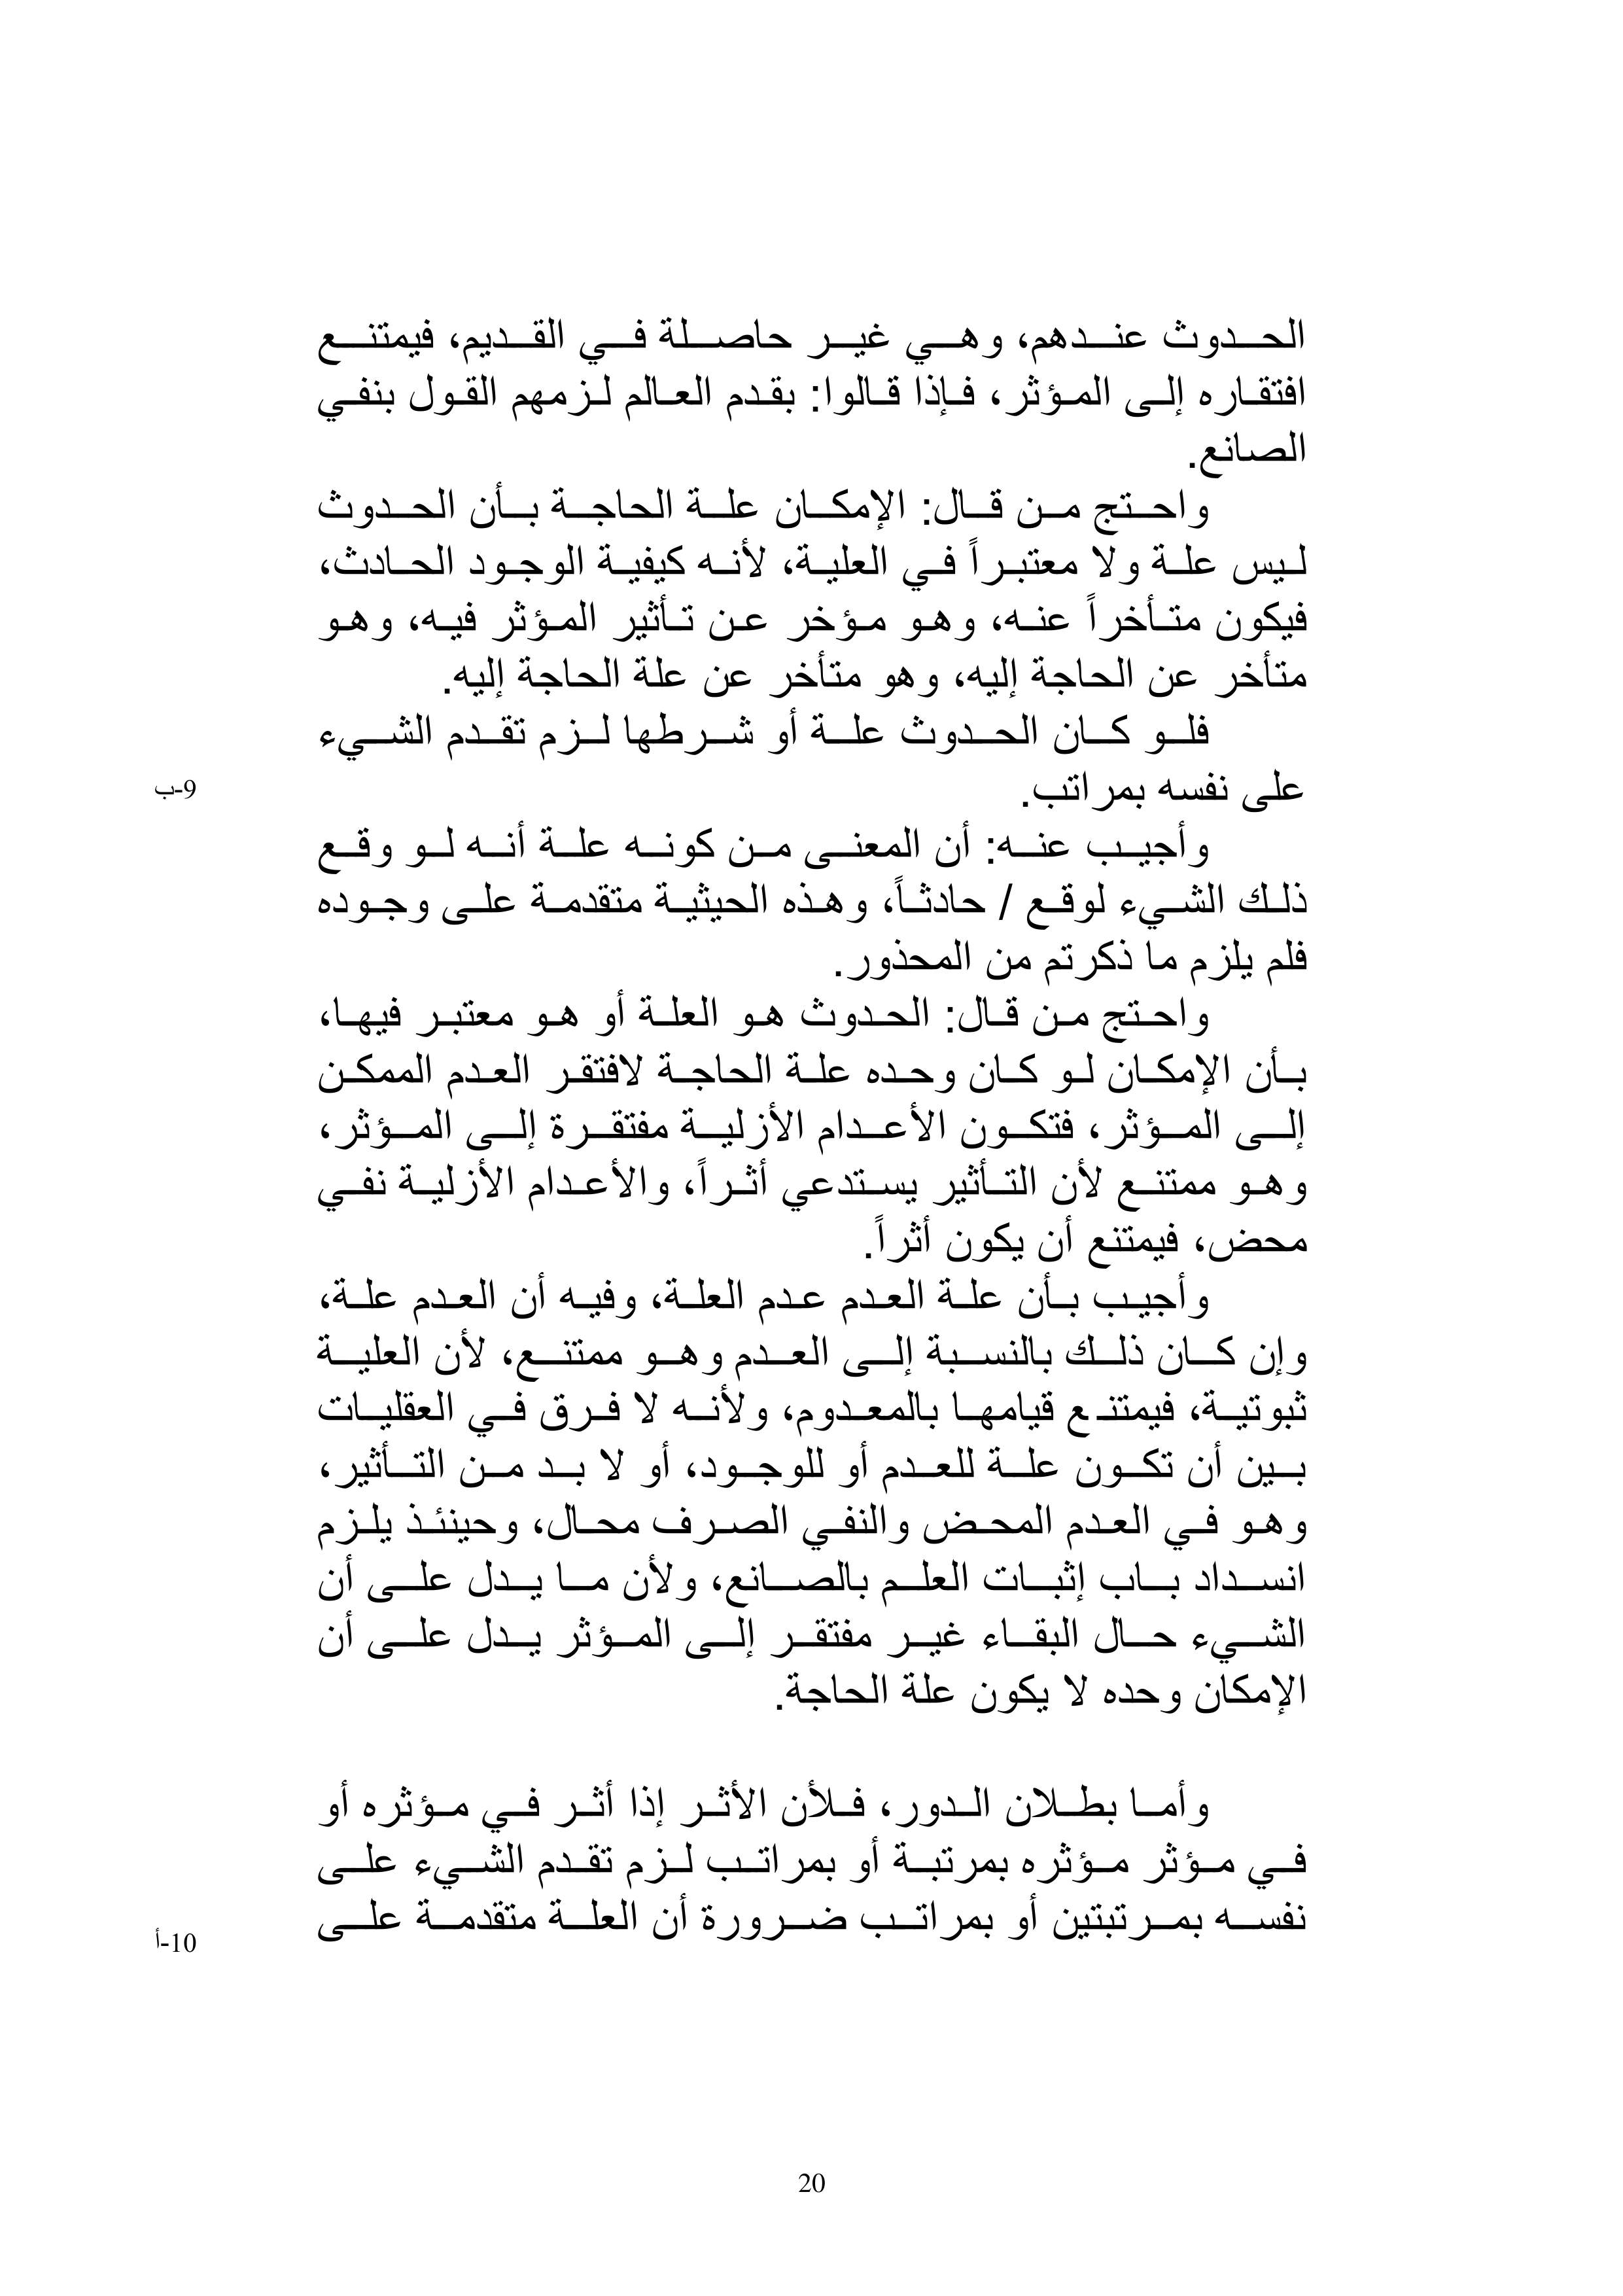 الحدوث عندهم، وهي غير حاصلة في القديم، فيمتنع
افتقاره إلى المؤثر، فإذا قالوا: بقدم العالم لزمهم القول بنفي
الصانع.
واحتج من قال: الإمكان علة الحاجة بأن الحدوث
ليس علة ولا معتبراً في العلية، لأنه كيفية الوجود الحادث،
فيكون متأخراً عنه، وهو مؤخر عن تأثير المؤثر فيه، وهو
متأخر عن الحاجة إليه، وهو متأخر عن علة الحاجة إليه.
فلو كان الحدوث علة أو شرطها لزم تقدم الشيء
على نفسه بمراتب.
9-ب
وأجيب عنه: أن المعنى من كونه علة أنه لو وقع
ذلك الشيء لوقع / حادثاً، وهذه الحيثية متقدمة على وجوده
فلم يلزم ما ذكرتم من المحذور.
واحتج من قال: الحدوث هو العلة أو هو معتبر فيها،
بأن الإمكان لو كان وحده علة الحاجة لافتقر العدم الممكن
إلى المؤثر، فتكون الأعدام الأزلية مفتقرة إلى المؤثر،
وهو ممتنع لأن التأثير يستدعي أثراً، والأعدام الأزلية نفي
محض، فيمتنع أن يكون أثراً.
وأجيب بأن علة العدم عدم العلة، وفيه أن العدم علة،
وإن كان ذلك بالنسبة إلى العدم وهو ممتنع، لأن العلية
ثبوتية، فيمتنع قيامها بالمعدوم، ولأنه لا فرق في العقليات
بين أن تكون علة للعدم أو للوجود، أو لا بد من التأثير،
وهو في العدم المحض والنفي الصرف محال، وحينئذ يلزم
انسداد باب إثبات العلم بالصانع، ولأن ما يدل على أن
الشيء حال البقاء غير مفتقر إلى المؤثر يدل على أن
الإمكان وحده لا يكون علة الحاجة.
وأما بطلان الدور، فلأن الأثر إذا أثر في مؤثره أو
في مؤثر مؤثره بمرتبة أو بمراتب لزم تقدم الشيء على
نفسه بمرتبتين أو بمراتب ضرورة أن العلة متقدمة على
10-أ
20